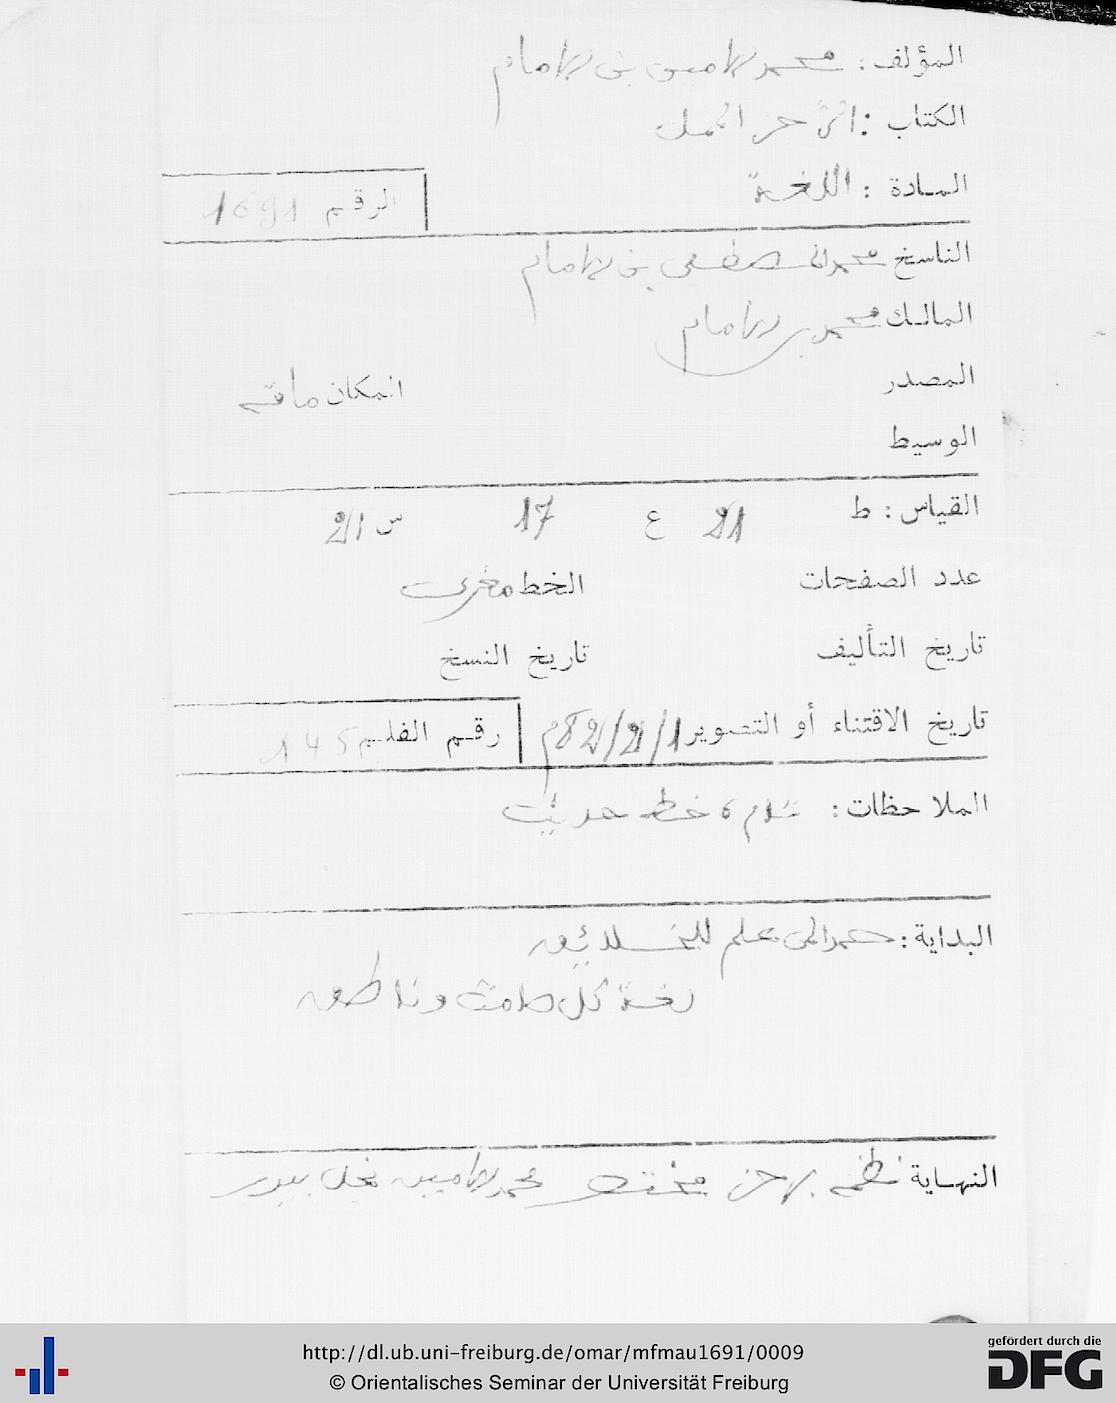 المؤلف: محمد الامين بن الامام
الكتاب:
المادة: اللغة
الرقم 1691
الناسخ محمد المصطفى بن الامام
المالك محمد بن الامام
المصدر
المكان
الوسيط
القياس: ط 21 ع 17 س 21
عدد الصفحات الخط مغربي
تاريخ التأليف تاريخ النسخ
تاريخ الاقتناء أو التصوير 1/2/82م رقم الفلم 145
الملاحظات: خط حديث
البداية: حمدا لمن علم للخلائق
لغة كل صامت وناطق
النهاية نظمه محمد الامين نجل
http://dl.ub.uni-freiburg.de/omar/mfmau1691/0009
© Orientalisches Seminar der Universität Freiburg
gefördert durch die
DFG